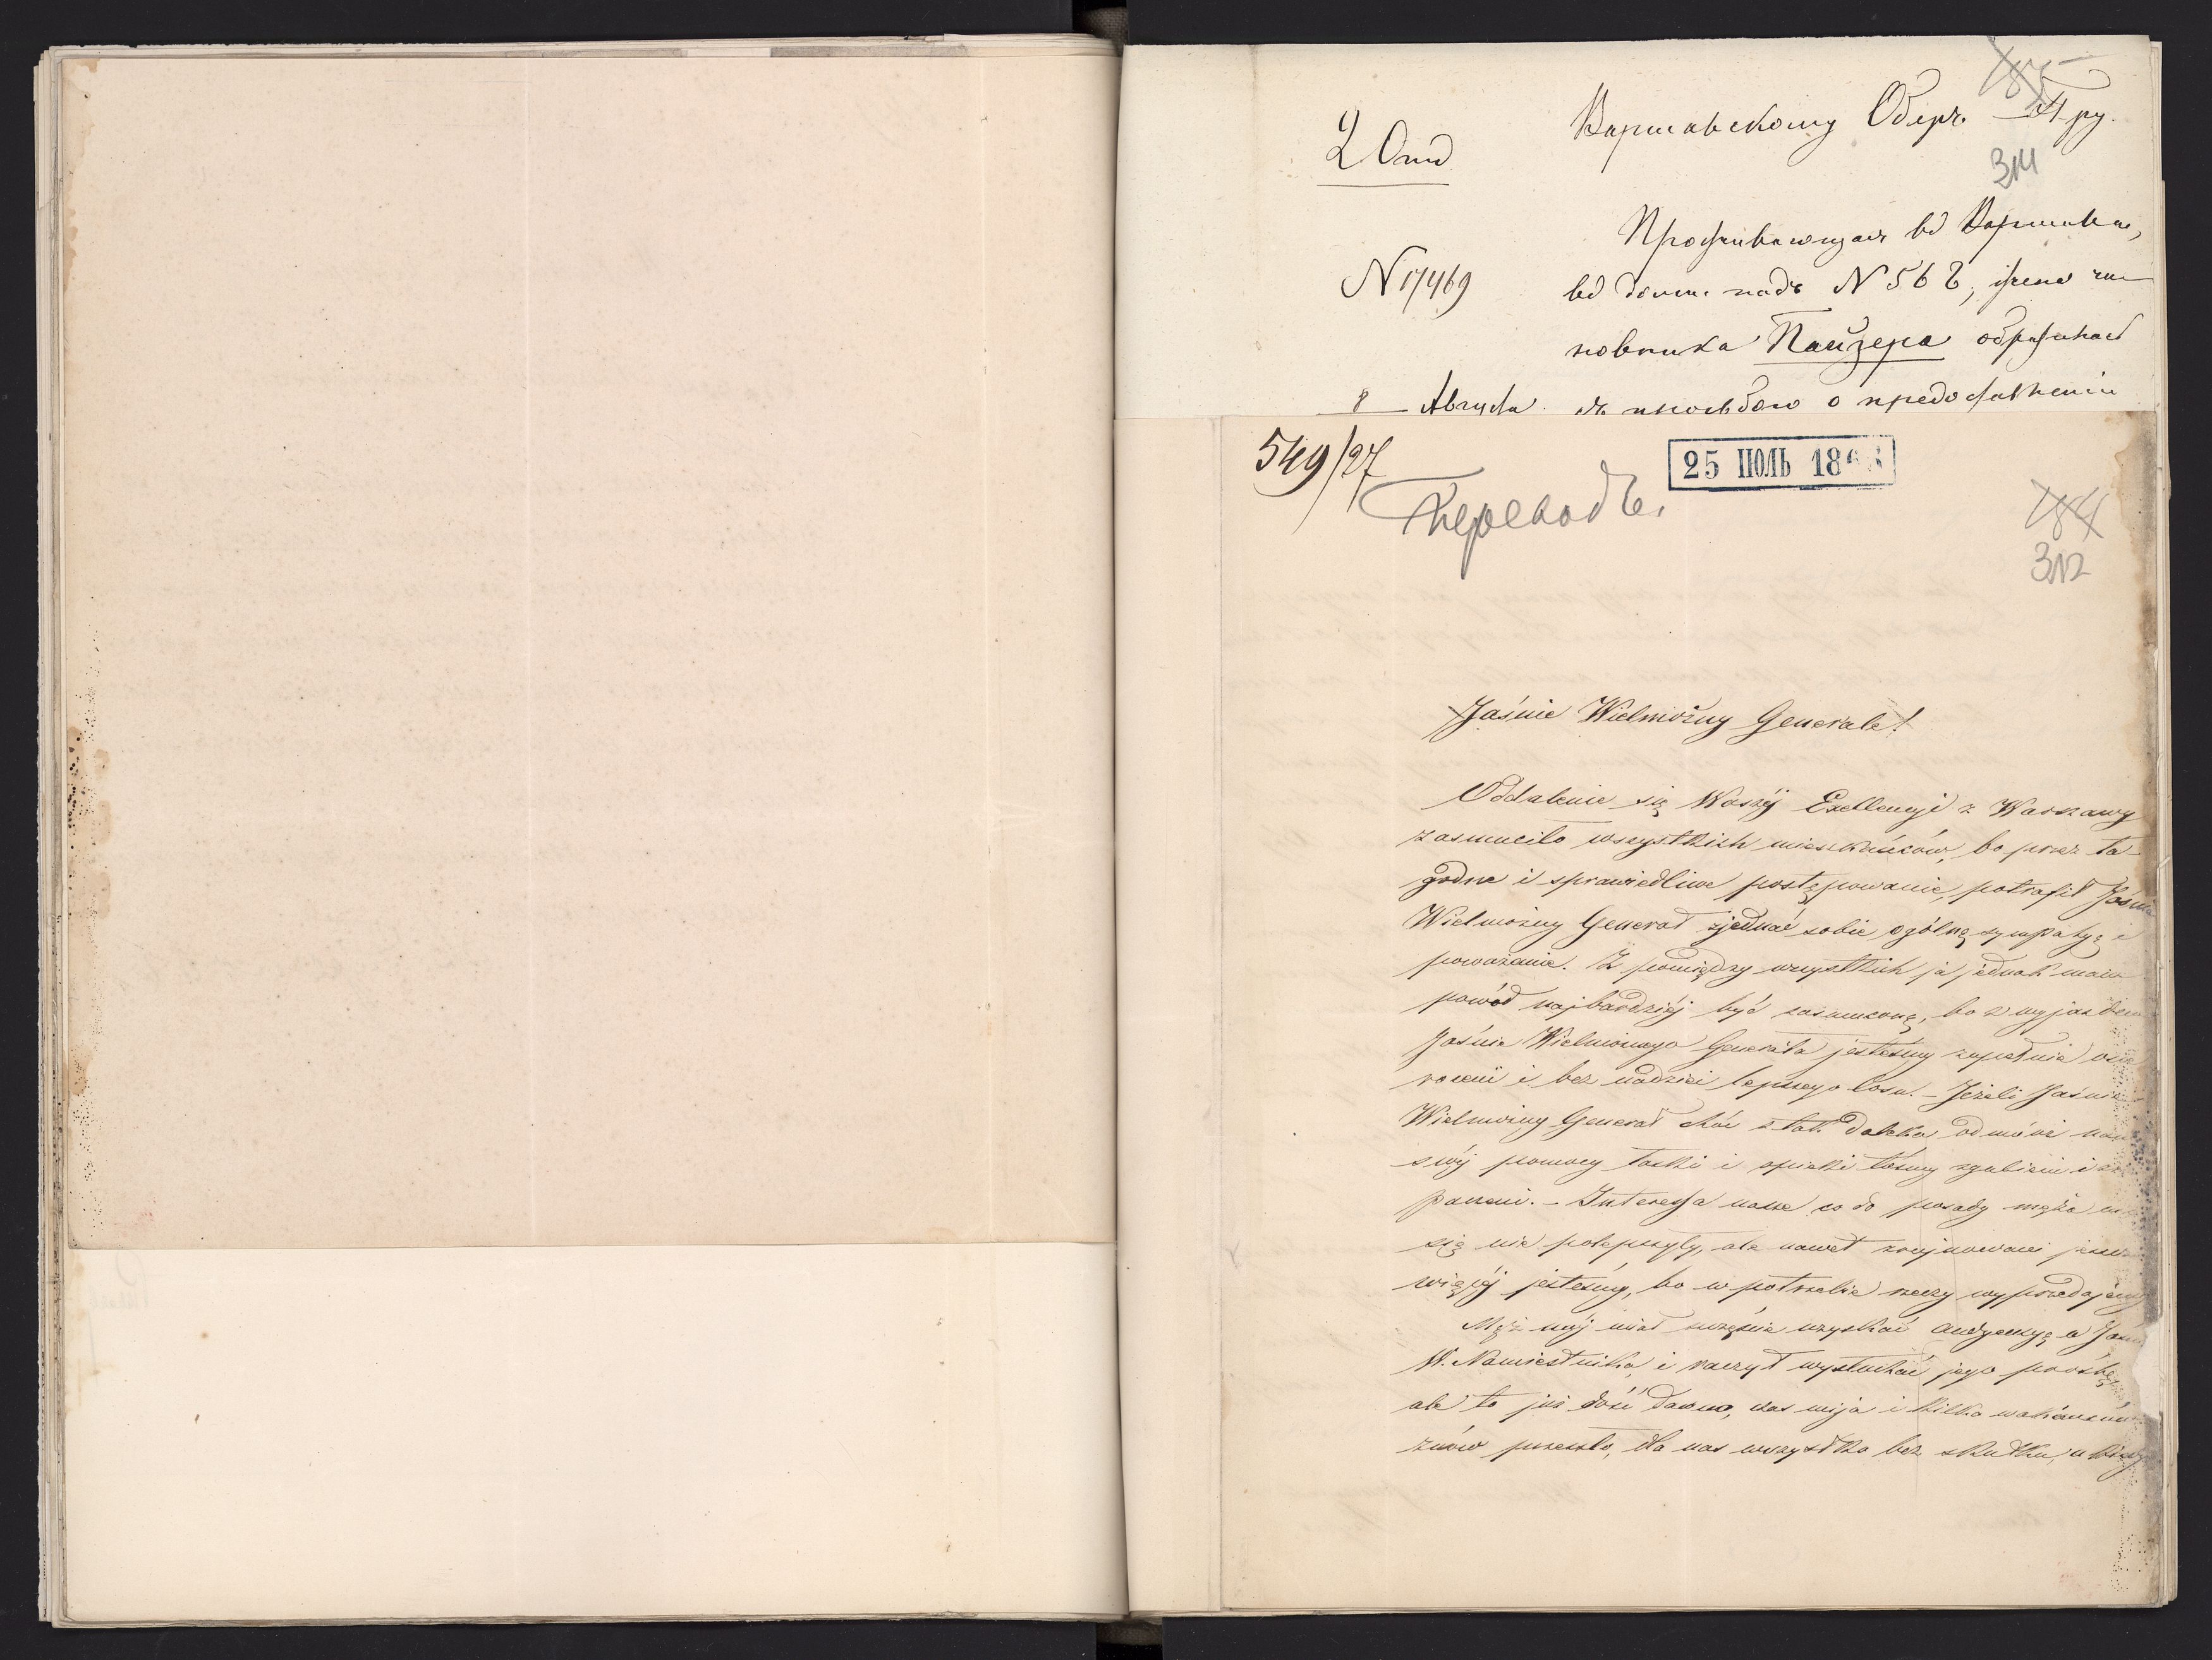 185
Варшавскому Оберъ
2 Отд
314
Проживающая въ Варшаве,
N 17469
въ доме подъ N 562, жена чи-
новника Пайзера обратилась
8 Августа съ просьбою о предоставленіи
549/27
25 ІЮЛЬ 186
Переводъ.
184
312
Jaśnie Wielmożny Generale!
Oddalenie się Waszéj Excellencyi z Warszawy
zasmuciło wszystkich mieszkańców, bo przez ła-
godne i sprawiedliwe postępowanie, potrafił Jaśnie
Wielmożny Generał zjednać sobie ogólną sympatyę i
poważanie. Z pomiędzy wszystkich ja jednak mam
powód najbardziéj być zasmuconą, bo z wyjazdem
Jaśnie Wielmożnego Generała jesteśmy zupełnie osie
roceni i bez nadziei lepszego losu. – Jeżeli Jaśnie
Wielmożny Generał choć z tak daleka odmówi nam
swéj pomocy łaski i opieki tośmy zgubieni i
– Interessa nasze co do posady męża
się nie polepszyły, ale nawet zrujnowani jeszcze
więcéj jesteśmy, bo w potrzebie rzeczy wyprzedajemy
Mąż mój miał szczęście uzyskać audyencyę u Jaśn
W. Namiestnika, i raczył wysłuchać jego prośbę,
ale to już dość dawno, czas mija i kilka wakansów
znów przeszło, dla nas wszystko bez skutku, a